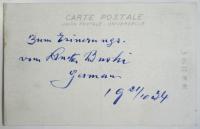 CARTE POSTALE
UNION POSTALE UNIVERSELLE
Zum Erinerungs.
vom Anton
German
19 21/10 34